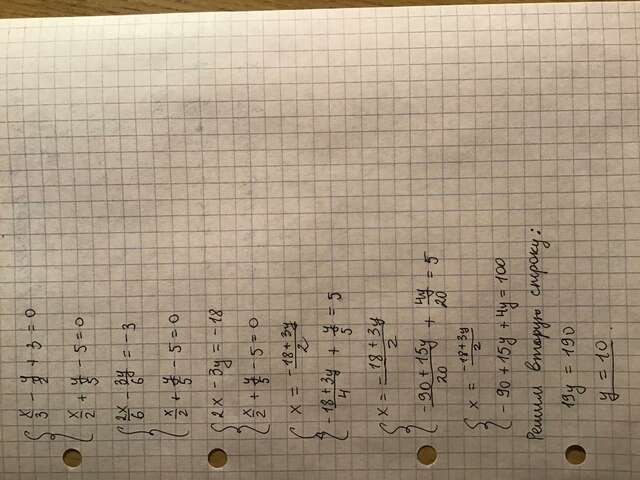 x/3 - y/2 + 3 = 0
x/2 + y/5 - 5 = 0
2x/6 - 3y/6 = -3
x/2 + y/5 - 5 = 0
2x - 3y = -18
x/2 + y/5 - 5 = 0
x = -18 + 3y/2
-18 + 3y/4 + y/5 = 5
x = -18 + 3y/2
-90 + 15y/20 + 4y/20 = 5
x = -18 + 3y/2
-90 + 15y + 4y = 100
Решим вторую строку:
19y = 190
y = 10